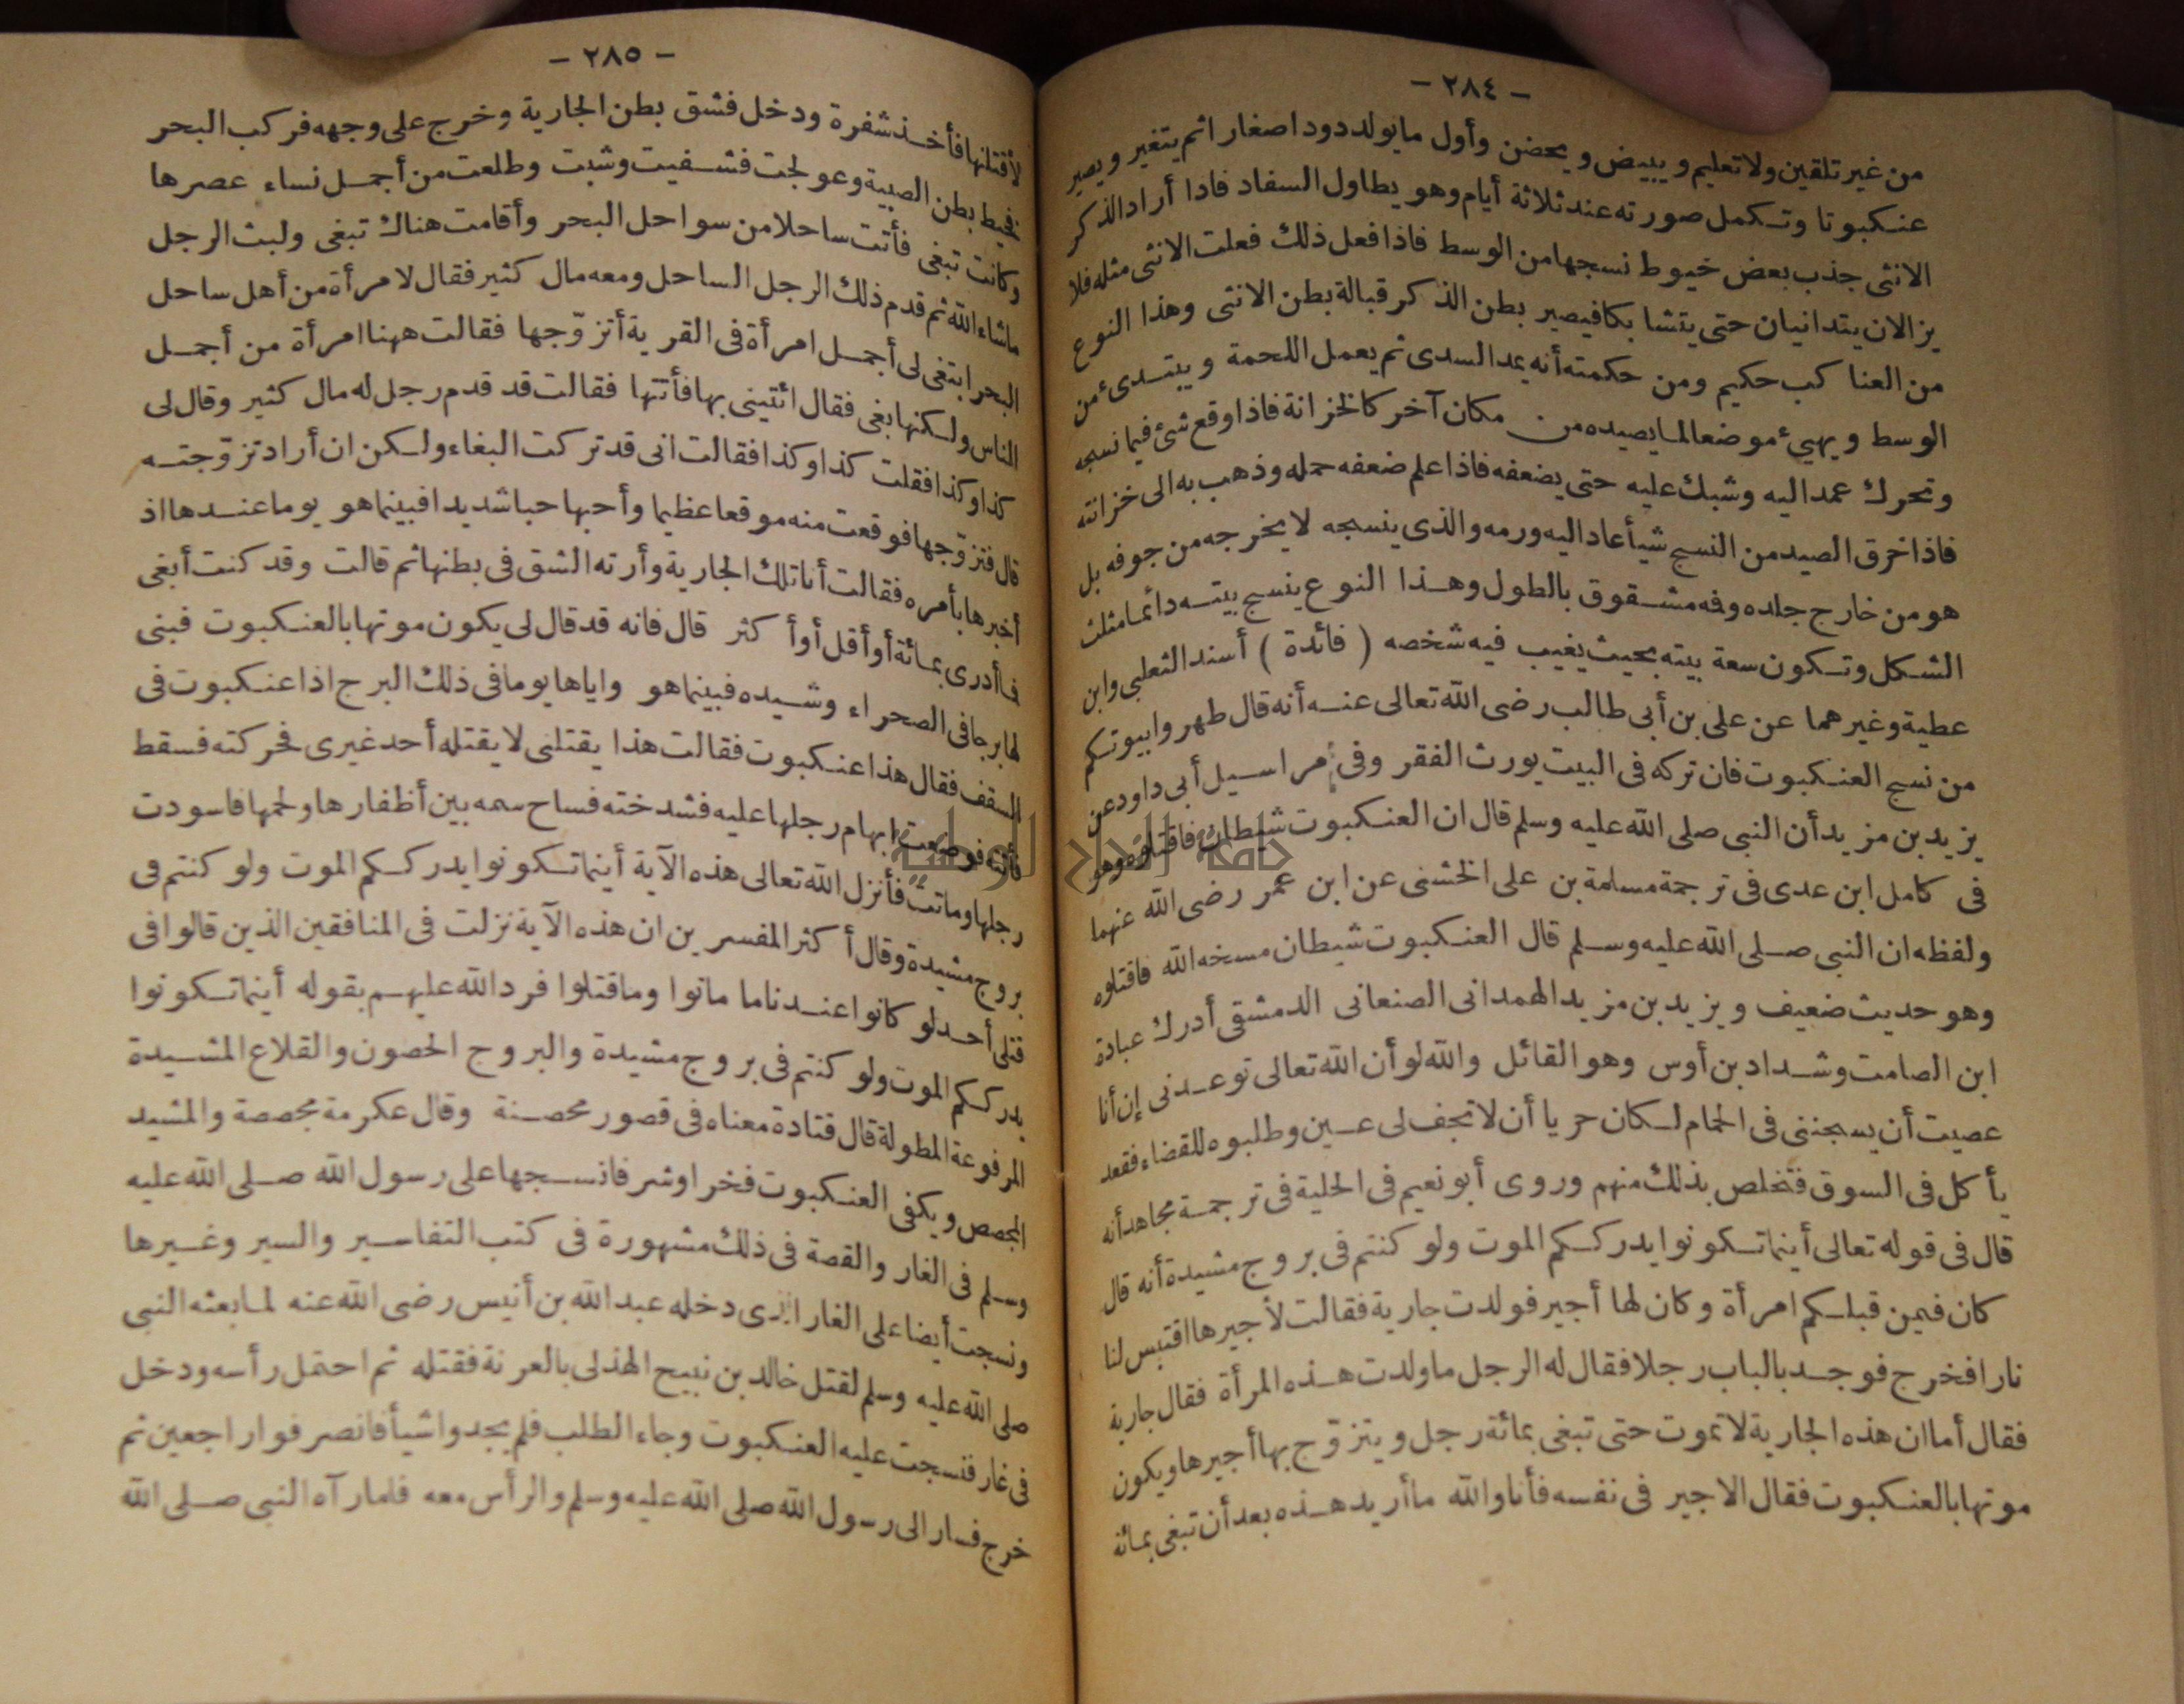 - ٢٨٤ -
من غير تلقين ولا تعليم ويبيض ويحضن وأول ما يولد دودا صغارا ثم يتغير ويصير
عنكبوتا وتكمل صورته عند ثلاثة أيام وهو يطاول السفاد فاذا أراد الذكر
الانثى جذب بعض خيوط نسجها من الوسط فاذا فعل ذلك فعلت الانثى مثله فلا
يزالان يتدانيان حتى يتشابكا فيصير بطن الذكر قبالة بطن الانثى وهذا النوع
من العناكب حكيم ومن حكمته أنه يمد السدى ثم يعمل اللحمة ويبتدىء من
الوسط ويهيء موضعا لما يصيده من مكان آخر كالخزانة فاذا وقع شئ فيما نسجه
وتحرك عمد اليه وشبك عليه حتى يضعفه فاذا علم ضعفه حمله وذهب به الى خزانته
فاذا خرق الصيد من النسج شيأ عاد اليه ورمه والذى ينسجه لا يخرجه من جوفه بل
هو من خارج جلده وفه مشقوق بالطول وهذا النوع ينسج بيته دائما مثلث
الشكل وتكون سعة بيته بحيث يغيب فيه شخصه ( فائدة ) أسند الثعلبى وابن
عطية وغيرهما عن على بن أبى طالب رضى الله تعالى عنه أنه قال طهروا بيوتكم
من نسج العنكبوت فان تركه فى البيت يورث الفقر وفى مراسيل أبى داود عن
يزيد بن مزيد أن النبى صلى الله عليه وسلم قال ان العنكبوت شيطان فاقتلوه وهو
فى كامل ابن عدى فى ترجمة مسلمة بن على الخشنى عن ابن عمر رضى الله عنهما
ولفظه ان النبى صلى الله عليه وسلم قال العنكبوت شيطان مسخه الله فاقتلوه
وهو حديث ضعيف ويزيد بن مزيد الهمدانى الصنعانى الدمشقى أدرك عبادة
ابن الصامت وشداد بن أوس وهو القائل والله لو أن الله تعالى توعدنى إن أنا
عصيت أن يسجننى فى الحمام لكان حريا أن لا تجف لى عين وطلبوه للقضاء فقعد
يأكل فى السوق فتخلص بذلك منهم وروى أبو نعيم فى الحلية فى ترجمة مجاهد أنه
قال فى قوله تعالى أينما تكونوا يدرككم الموت ولو كنتم فى بروج مشيدة أنه قال
كان فيمن قبلكم امرأة وكان لها أجير فولدت جارية فقالت لأجيرها اقتبس لنا
نارا فخرج فوجد بالباب رجلا فقال له الرجل ما ولدت هذه المرأة فقال جارية
فقال أما ان هذه الجارية لا تموت حتى تبغى بمائة رجل ويتزوّج بها أجيرها ويكون
موتها بالعنكبوت فقال الاجير فى نفسه فأنا والله ما أريد هذه بعد أن تبغى بمائة
- ٢٨٥ -
لأقتلنها فأخذ شفرة ودخل فشق بطن الجارية وخرج على وجهه فركب البحر
فخيط بطن الصبية وعولجت فشفيت وشبت وطلعت من أجمل نساء عصرها
وكانت تبغى فأتت ساحلا من سواحل البحر وأقامت هناك تبغى ولبث الرجل
ماشاء الله ثم قدم ذلك الرجل الساحل ومعه مال كثير فقال لامرأة من أهل ساحل
البحر ابتغى لى أجمل امرأة فى القرية أتزوّجها فقالت ههنا امرأة من أجمل
الناس ولكنها بغى فقال ائتينى بها فأتتها فقالت قد قدم رجل له مال كثير وقال لى
كذا وكذا فقلت كذا وكذا فقالت انى قد تركت البغاء ولكن ان أراد تزوّجته
قال فتزوّجها فوقعت منه موقعا عظيما وأحبها حبا شديدا فبينما هو يوما عندها اذ
أخبرها بأمره فقالت أنا تلك الجارية وأرته الشق فى بطنها ثم قالت وقد كنت أبغى
فما أدرى بمائة أو أقل أو أكثر قال فانه قد قال لى يكون موتها بالعنكبوت فبنى
لها برجا فى الصحراء وشيده فبينما هو واياها يوما فى ذلك البرج اذا عنكبوت فى
السقف فقال هذا عنكبوت فقالت هذا يقتلنى لا يقتله أحد غيرى فحركته فسقط
فأتته فوضعت ابهام رجلها عليه فشدخته فساح سمه بين أظفارها ولحمها فاسودت
رجلها وماتت فأنزل الله تعالى هذه الآية أينما تكونوا يدرككم الموت ولو كنتم فى
بروج مشيدة وقال أكثر المفسرين ان هذه الآية نزلت فى المنافقين الذين قالوا فى
قتلى أحد لو كانوا عندنا ما ماتوا وما قتلوا فرد الله عليهم بقوله أينما تكونوا
يدرككم الموت ولو كنتم فى بروج مشيدة والبروج الحصون والقلاع المشيدة
المرفوعة المطولة قال قتادة معناه فى قصور محصنة وقال عكرمة مجصصة والمشيد
المجصص ويكفى العنكبوت فخرا وشرفا نسجها على رسول الله صلى الله عليه
وسلم فى الغار والقصة فى ذلك مشهورة فى كتب التفاسير والسير وغيرها
ونسجت أيضا على الغار الذى دخله عبد الله بن أنيس رضى الله عنه لما بعثه النبى
صلى الله عليه وسلم لقتل خالد بن نبيح الهذلى بالعرنة فقتله ثم احتمل رأسه ودخل
فى غار فنسجت عليه العنكبوت وجاء الطلب فلم يجدوا شيأ فانصرفوا راجعين ثم
خرج فسار الى رسول الله صلى الله عليه وسلم والرأس معه فلما رآه النبى صلى الله
جامعة النجاح الوطنية